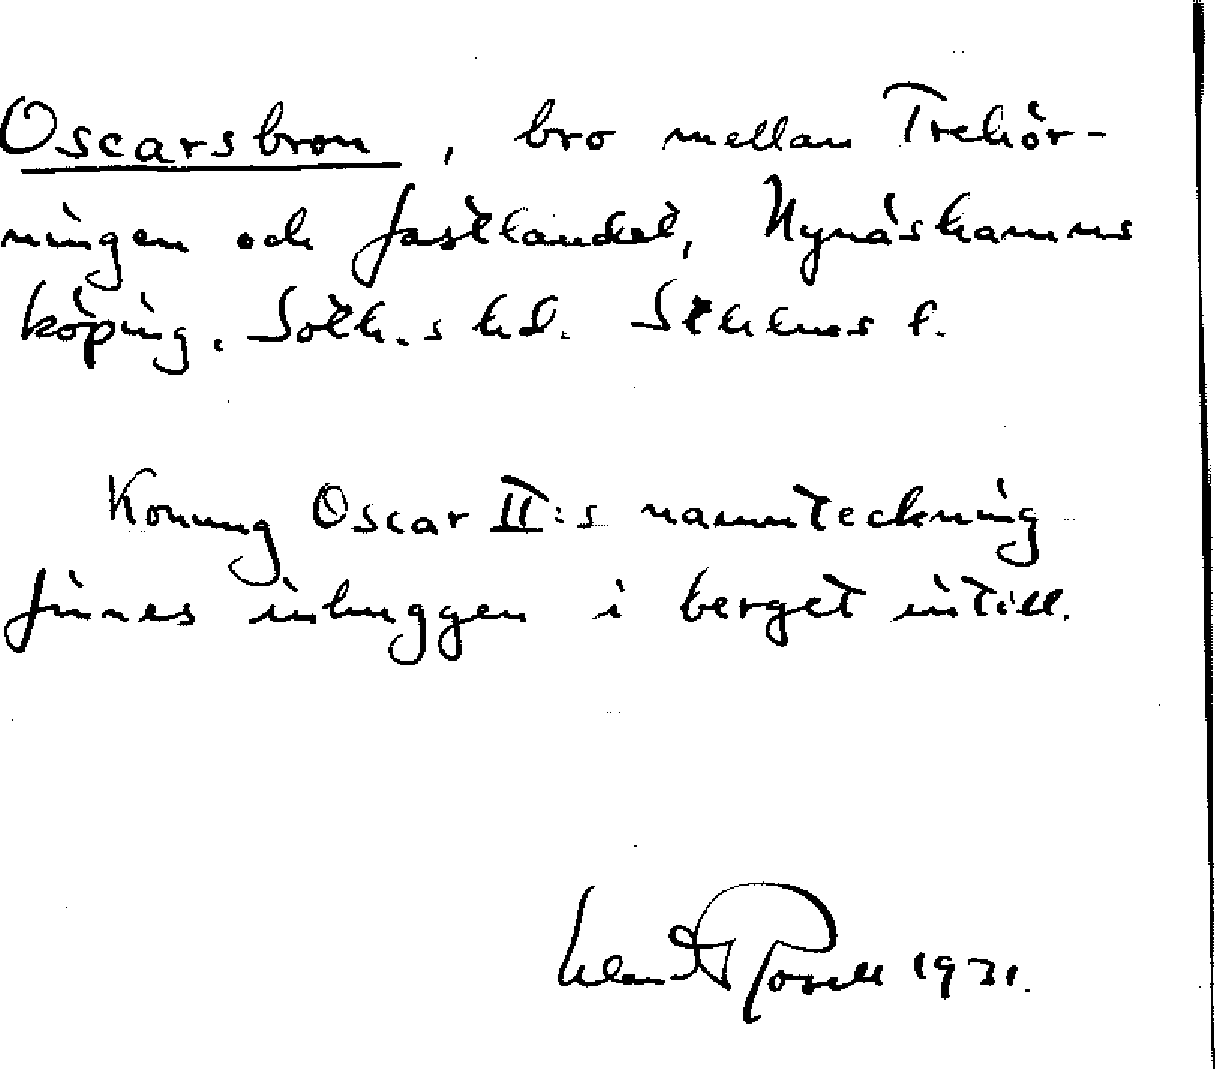 Oscarsbron, bro mellan Trehör-
ningen och fastlandet, Nynäshamns
köping. Soth.s hd. Sthlms l.
Konung Oscar II:s namnteckning
finnes inhuggen i berget intill.
1931.